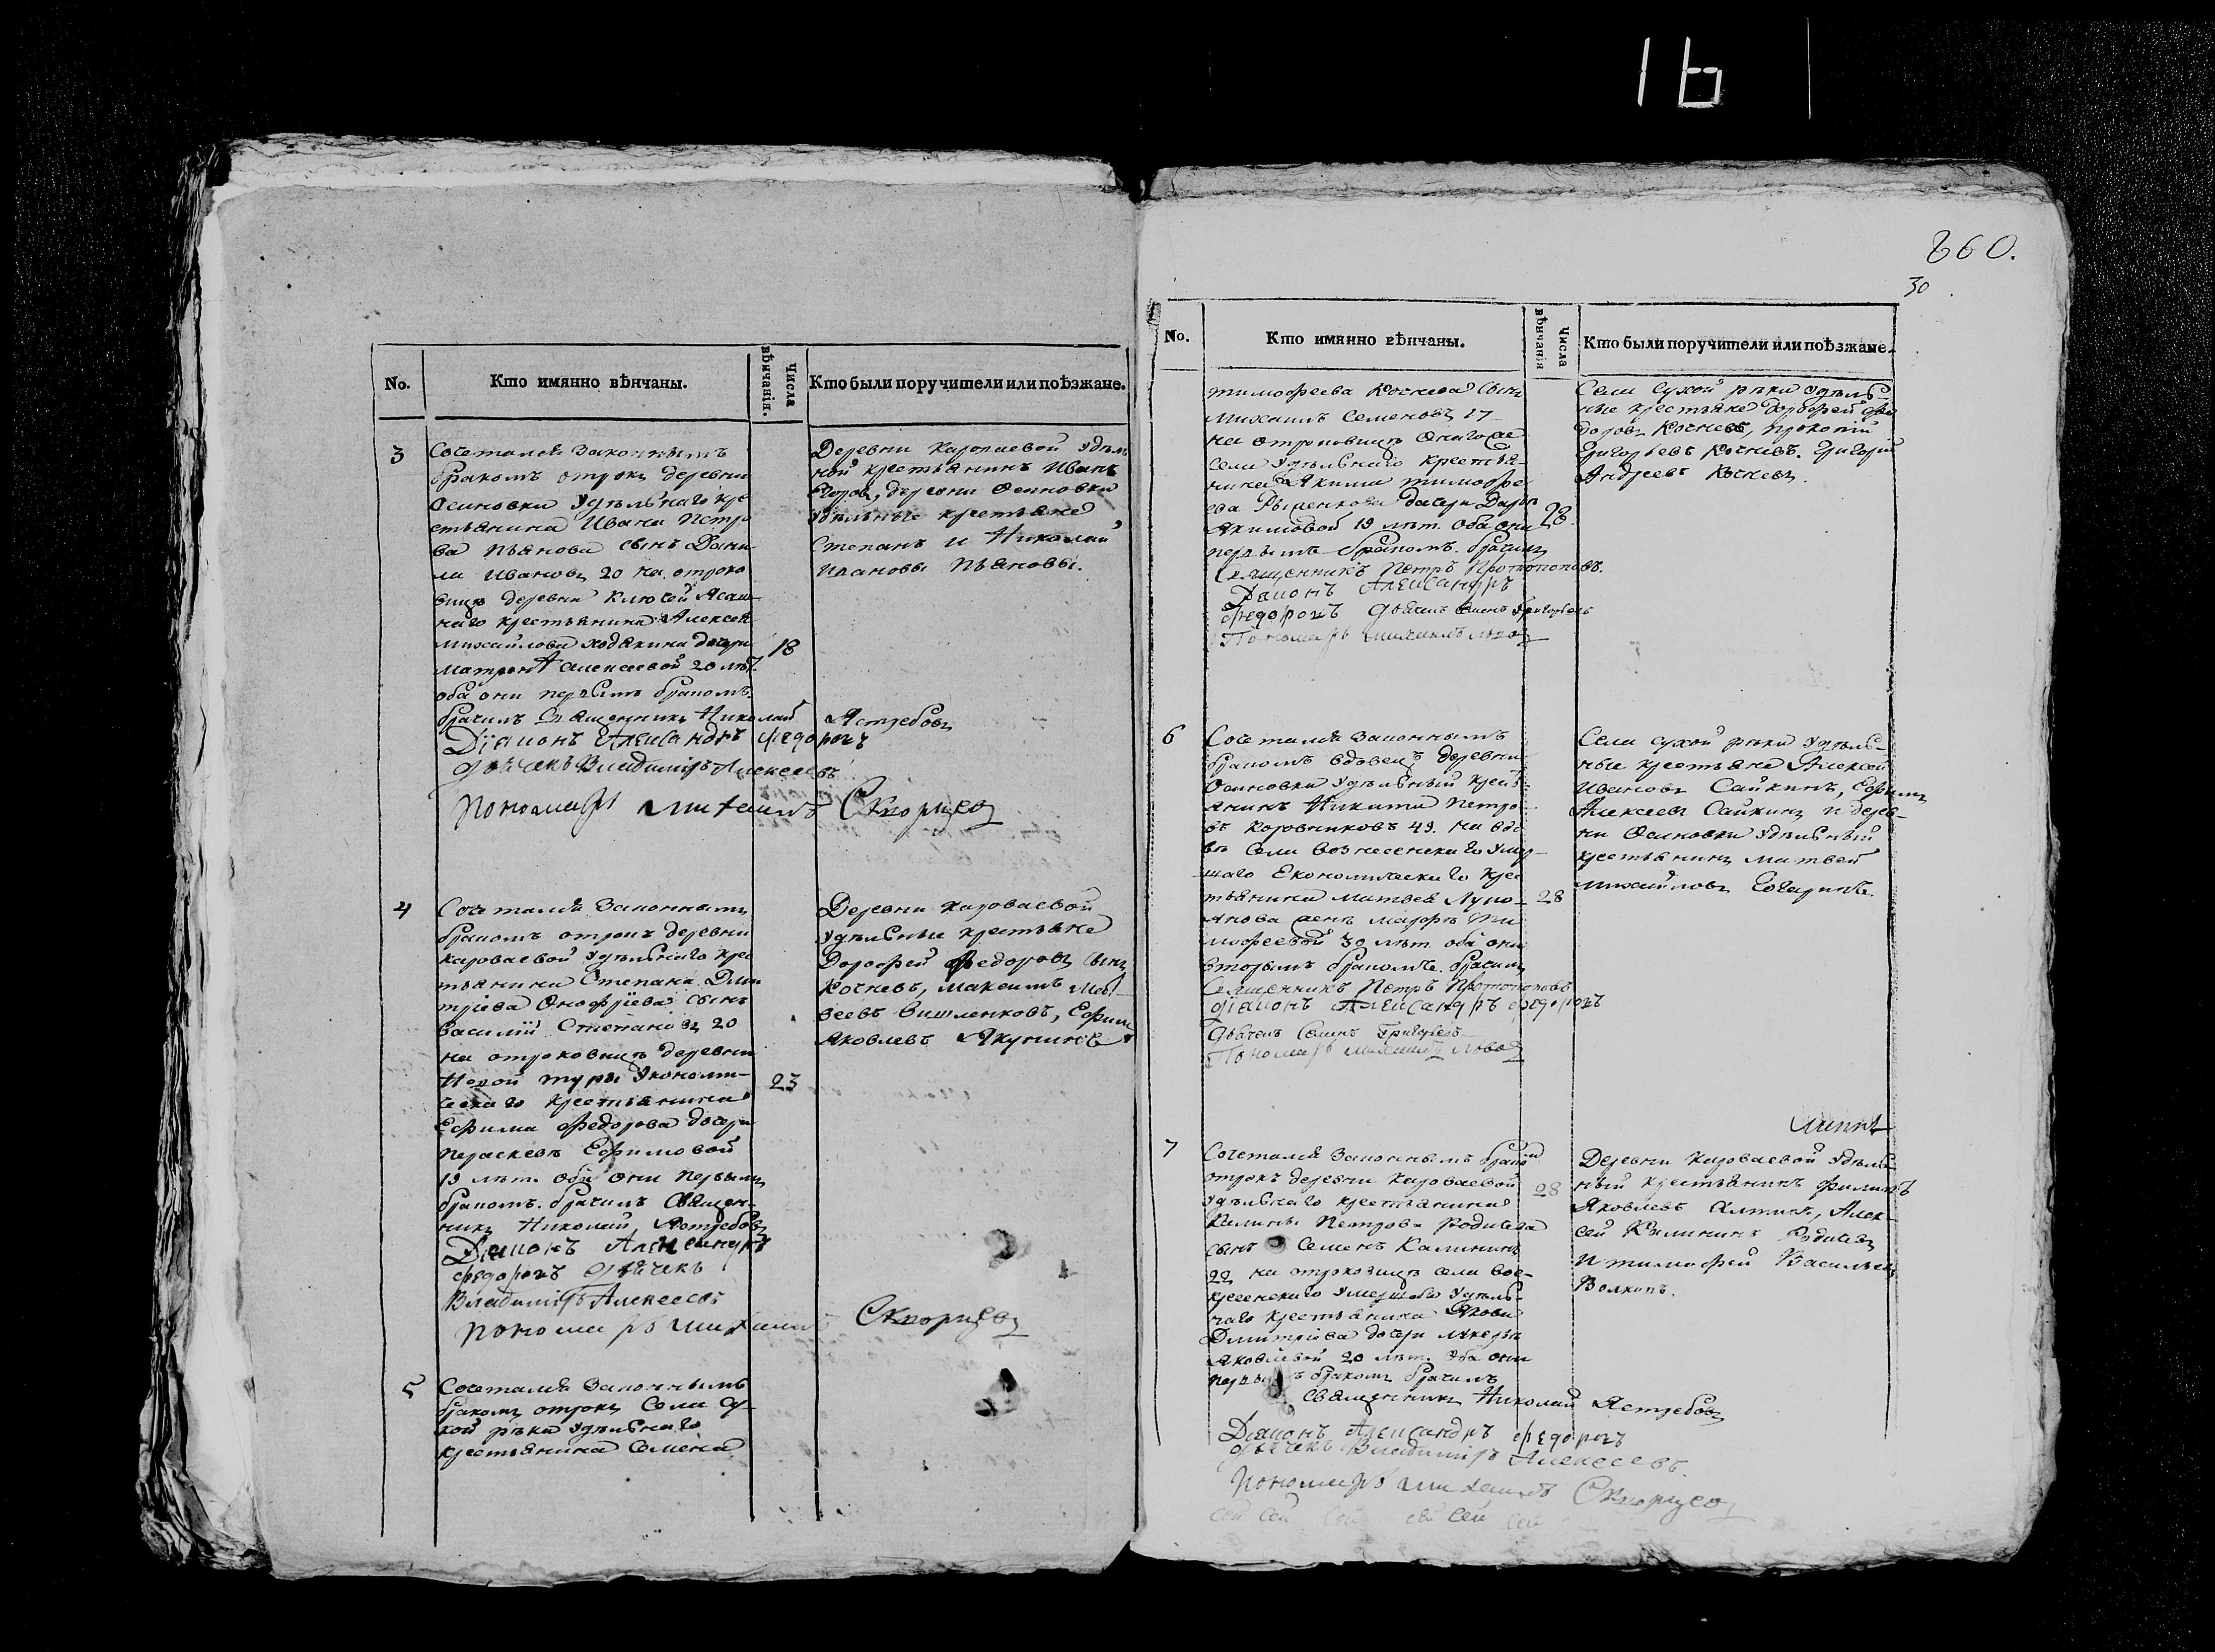 16
860.
30
No.
Кто имянно вѣнчаны.
Числа вѣнчанія.
Кто были поручители или поѣзжане.
3
Сочетался законнымъ
бракомъ отрокъ деревни
Осиновки Удѣльнаго кре
стьянина Ивана Петро
ва Пьянова сынъ Дани
ла Ивановъ 20 на отроко
вицѣ деревни Ключей Ясаш
наго крестьянина Алексея
Михайлова Ходякина дочери
Матронѣ Алексеевой 20 лѣт.
оба они первымъ бракомъ.
18
брачилъ Священникъ Николай Ястребовъ
Діаконъ Александръ Федоровъ
Дьячекъ Владимiръ Алексеевъ
Пономарь Михаилъ Скворцов
Деревни Короваевой Удѣль
ной крестьянинъ Иванъ
Егоров, деревни Осиновки
Удѣльные крестьяне
Степанъ и Николай
Ивановы Пьяновы.
4
Сочетался законнымъ
бракомъ отрокъ деревни
Короваевой Удѣльнаго крес
тьянина Степана Дми
тріева Онофріева сынъ
Василій Степановъ 20
на отроковицѣ деревни
Новой туры Экономи-
ческаго крестьянина
Ефима Федорова дочери
Параскевѣ Ефимовой
19 лѣт. оба они первымъ
бракомъ. брачилъ Священ-
никъ Николай Ястребовъ
23
Діаконъ Александръ
Федоровъ Дьячекъ
Владимiръ Алексеевъ
Пономарь Михаилъ Скворцовъ
Деревни Короваевой
Удѣльные крестьяне
Дорофей Федоровъ сынъ
Кочневъ, Максимъ Мат-
веевъ Вишленковъ, Ефимъ
Яковлевъ Якунинъ
5
Сочетался законнымъ
бракомъ отрокъ Села Су-
хой рѣки Удѣльнаго
крестьянина Семена
No.
Кто имянно вѣнчаны.
Числа вѣнчанія
Кто были поручители или поѣзжане.
Тимофеева Кочнева сынъ
Михаилъ Семеновъ 17
на отроковицѣ онаго же
села Удѣльнаго крестья-
нина Якима Тимофе
ева дочери Дарьѣ
Якимовой 19 лѣт. оба они
первымъ бракомъ. брачилъ
28
Священникъ Петръ Протопоповъ.
Діаконъ Александръ
Федоровъ Дьячекъ Семенъ Григорьевъ
Пономарь Михаилъ Львовъ
Села Сухой рѣки Удѣль-
ные крестьяне Дорофей Фе
доровъ Кочневъ, Прокопій
Григорьевъ Кочневъ. Григорій
Андреевъ Кочневъ.
6
Сочетался законнымъ
бракомъ вдовецъ деревни
Осиновки Удѣльный крест
янинъ Никита Петро
въ Коровниковъ 49. на вдо
вѣ Села Вознесенскаго умер
шаго Економическаго крес
тьянина Матвея Луко-
янова женѣ Марфѣ Ти
мофеевой 39 лѣт. оба они
вторымъ бракомъ. брачилъ
28
Священникъ Петръ Протопоповъ
Діаконъ Александръ Федоровъ
Дьячекъ Семенъ Григорьевъ
Пономарь Михаилъ Львовъ
Села Сухой рѣки Удѣль-
ные крестьяне Алексей
Ивановъ Сайкинъ, Ефимъ
Алексеевъ Сайкинъ и дерев-
ни Осиновки Удѣльный
крестьянинъ Матвей
Михайловъ
7
Сочетался законнымъ бракомъ
отрокъ деревни Короваевой
Удѣльнаго крестьянина
Калины Петрова Родичева
сынъ Семенъ Калининъ
22 на отроковицѣ села Вос-
кресенскаго умершаго Удѣль-
наго крестьянина Якова
Димитріева дочери Лукерьѣ
Яковлевой 20 лѣт. Оба они
первымъ бракомъ брачилъ
28
Священникъ Николай Ястребовъ
Діаконъ Александръ Федоровъ
Дьячекъ Владимiръ Алексеевъ.
Пономарь Михаилъ Скворцов
сей сей сей сей сей сей
Деревни Короваевой Удѣль-
ный крестьянинъ Филипъ
Яковлевъ Алтинъ, Алек-
сей Калининъ Родичевъ
и Тимофей Васильевъ
Волковъ.